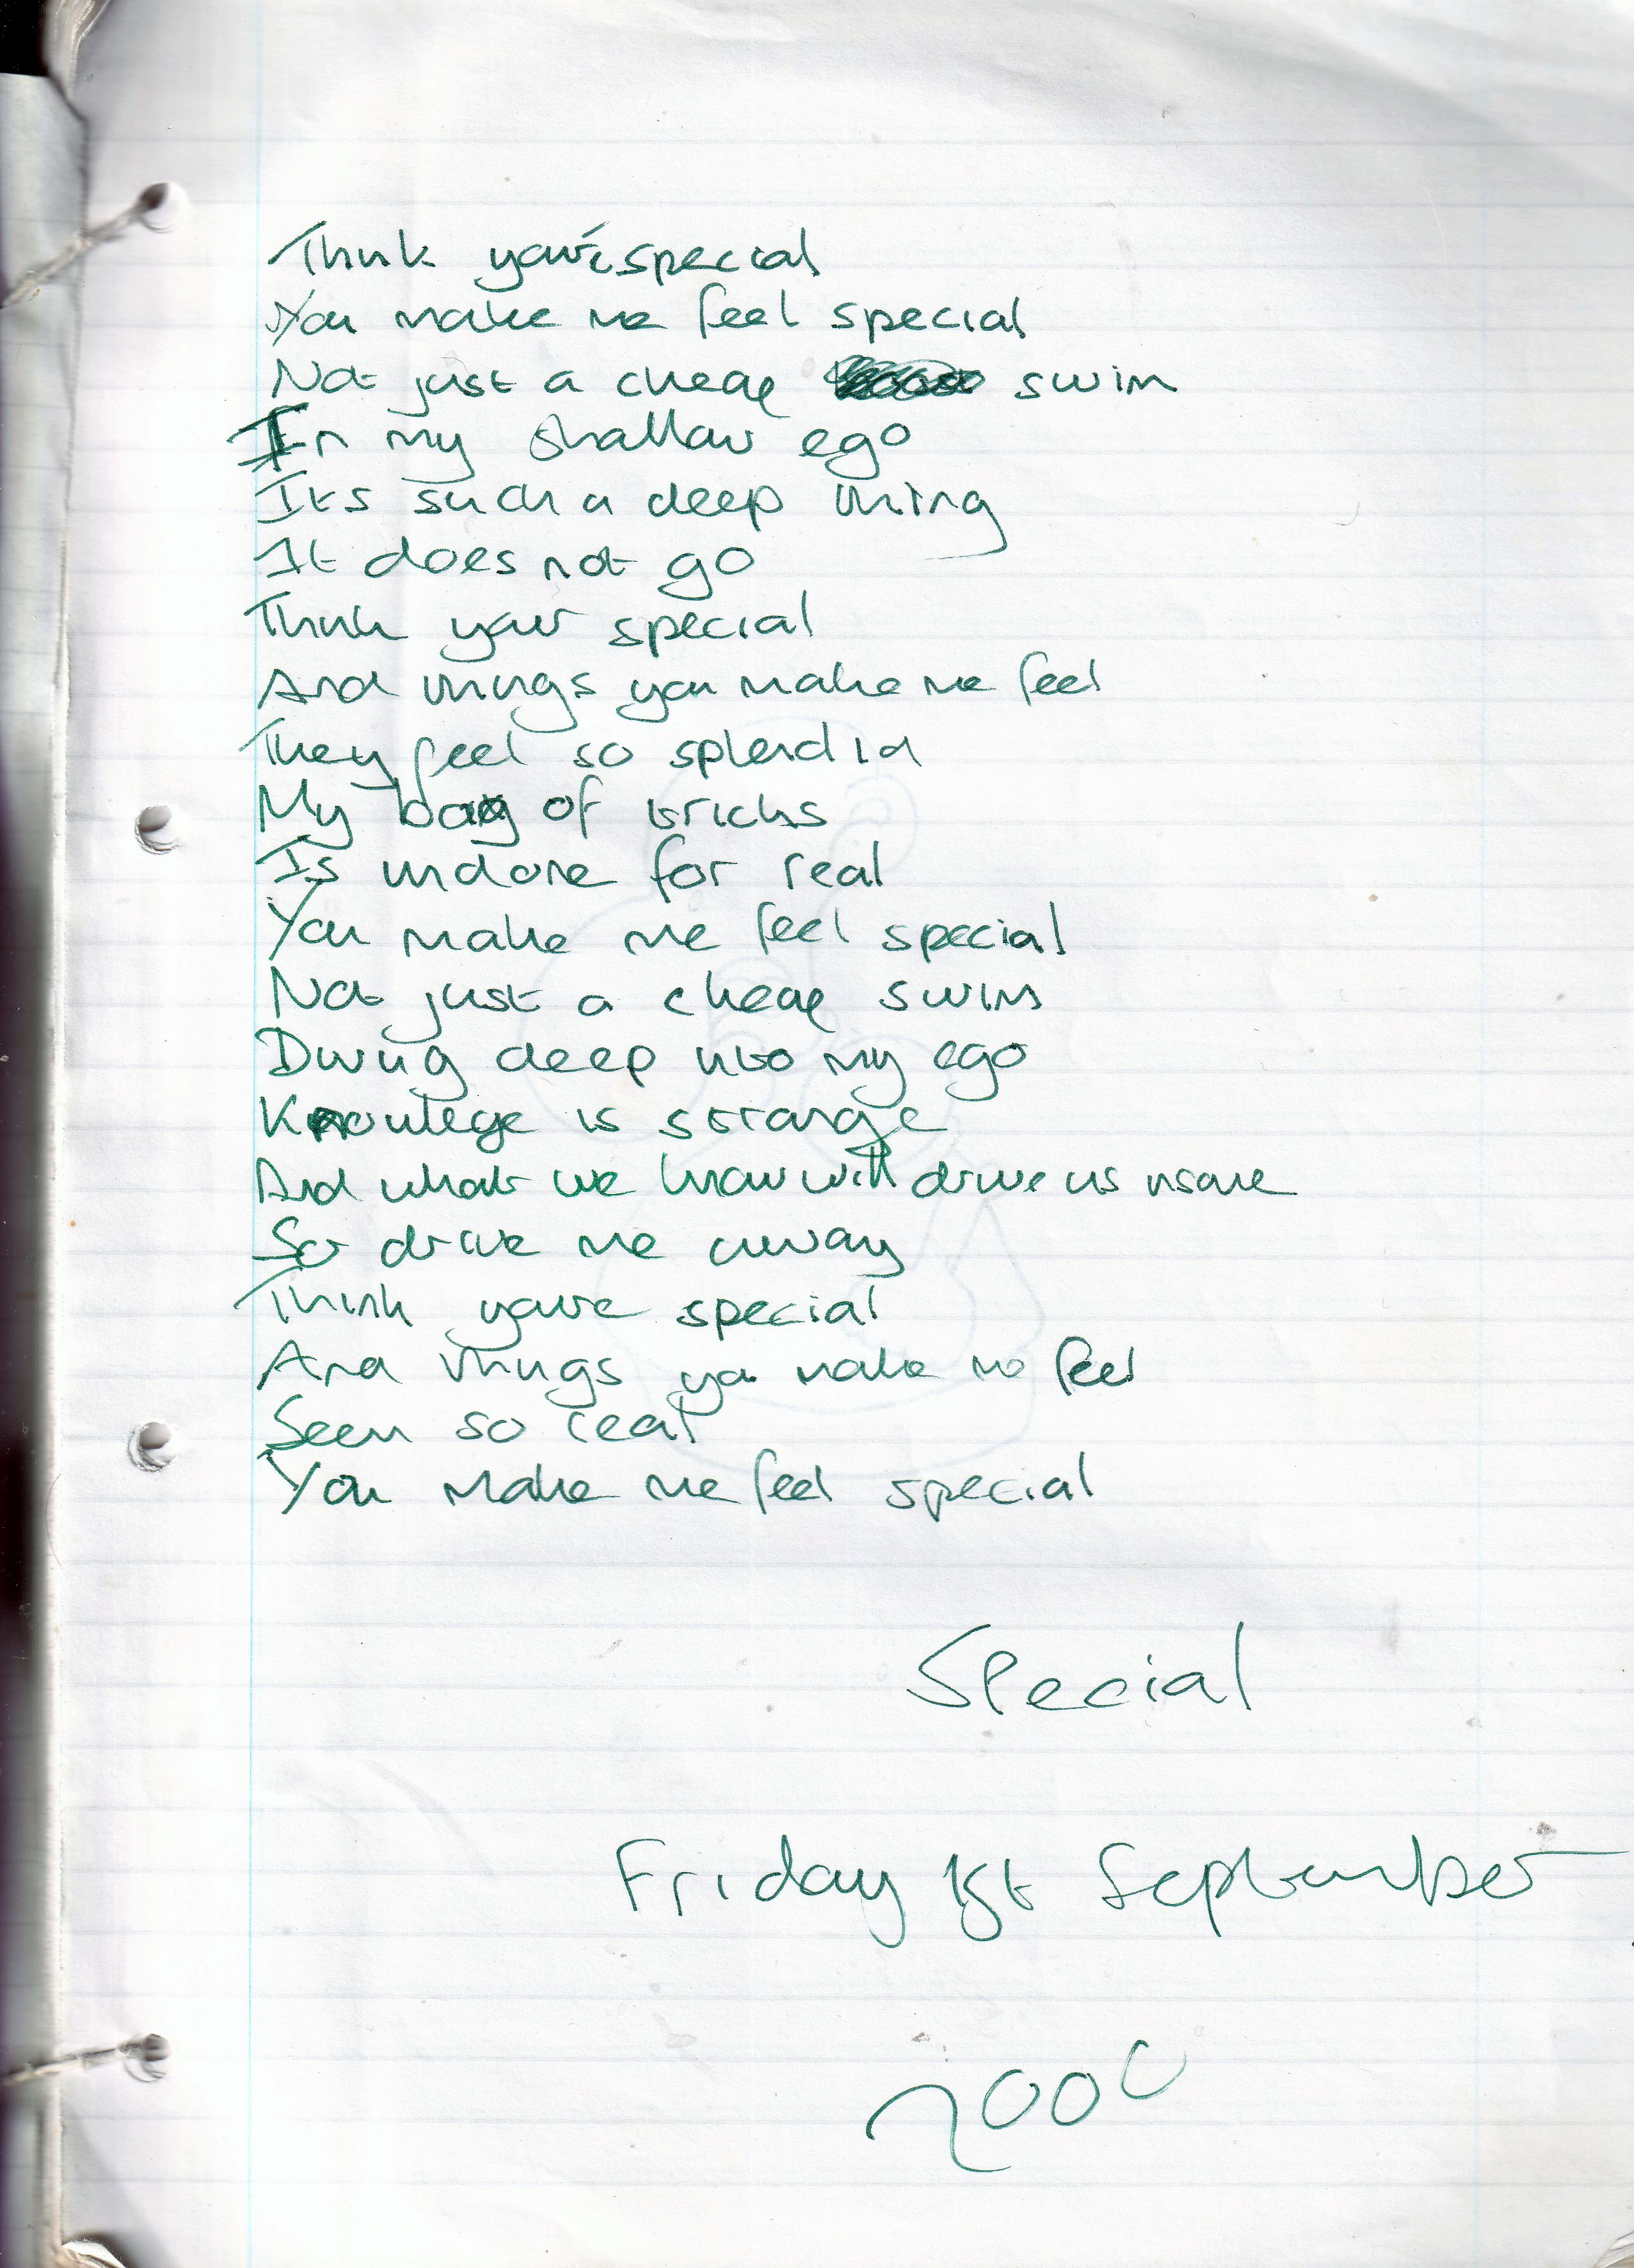 Think you're special
You make me feel special
Not just a cheap swim
In my shallow ego
Its such a deep thing
It does not go
Think your special
And things you make me feel
They feel so splendid
My bag of tricks
Is undone for real
You make me feel special
Not just a cheap swim
Diving deep into my ego
Knowlege is strange
And what we know will drive us insane
So drive me away
Think youre special
And things you make me feel
Seem so real
You make me feel special
Special
Friday 1st September
2000